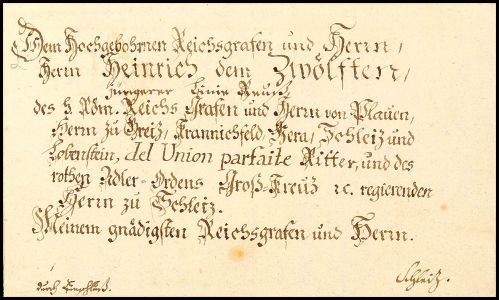 Dem Hochgebohrnen Reichsgrafen und Herrn,
Herrn Heinrich dem Zwölften,
jüngerer Linie Reuß
des h. Röm. Reichs Grafen und Herrn von Plauen,
Herrn zu Greiz, Krannichfeld, Gera, Schleiz und
Lobenstein, del Union parfaite Ritter, und des
rothen Adler-Ordens Groß-Kreuz ꝛc. regierenden
Herrn zu Schleiz.
Meinem gnädigsten Reichsgrafen und Herrn.
Schleiz.
durch Einschluß.